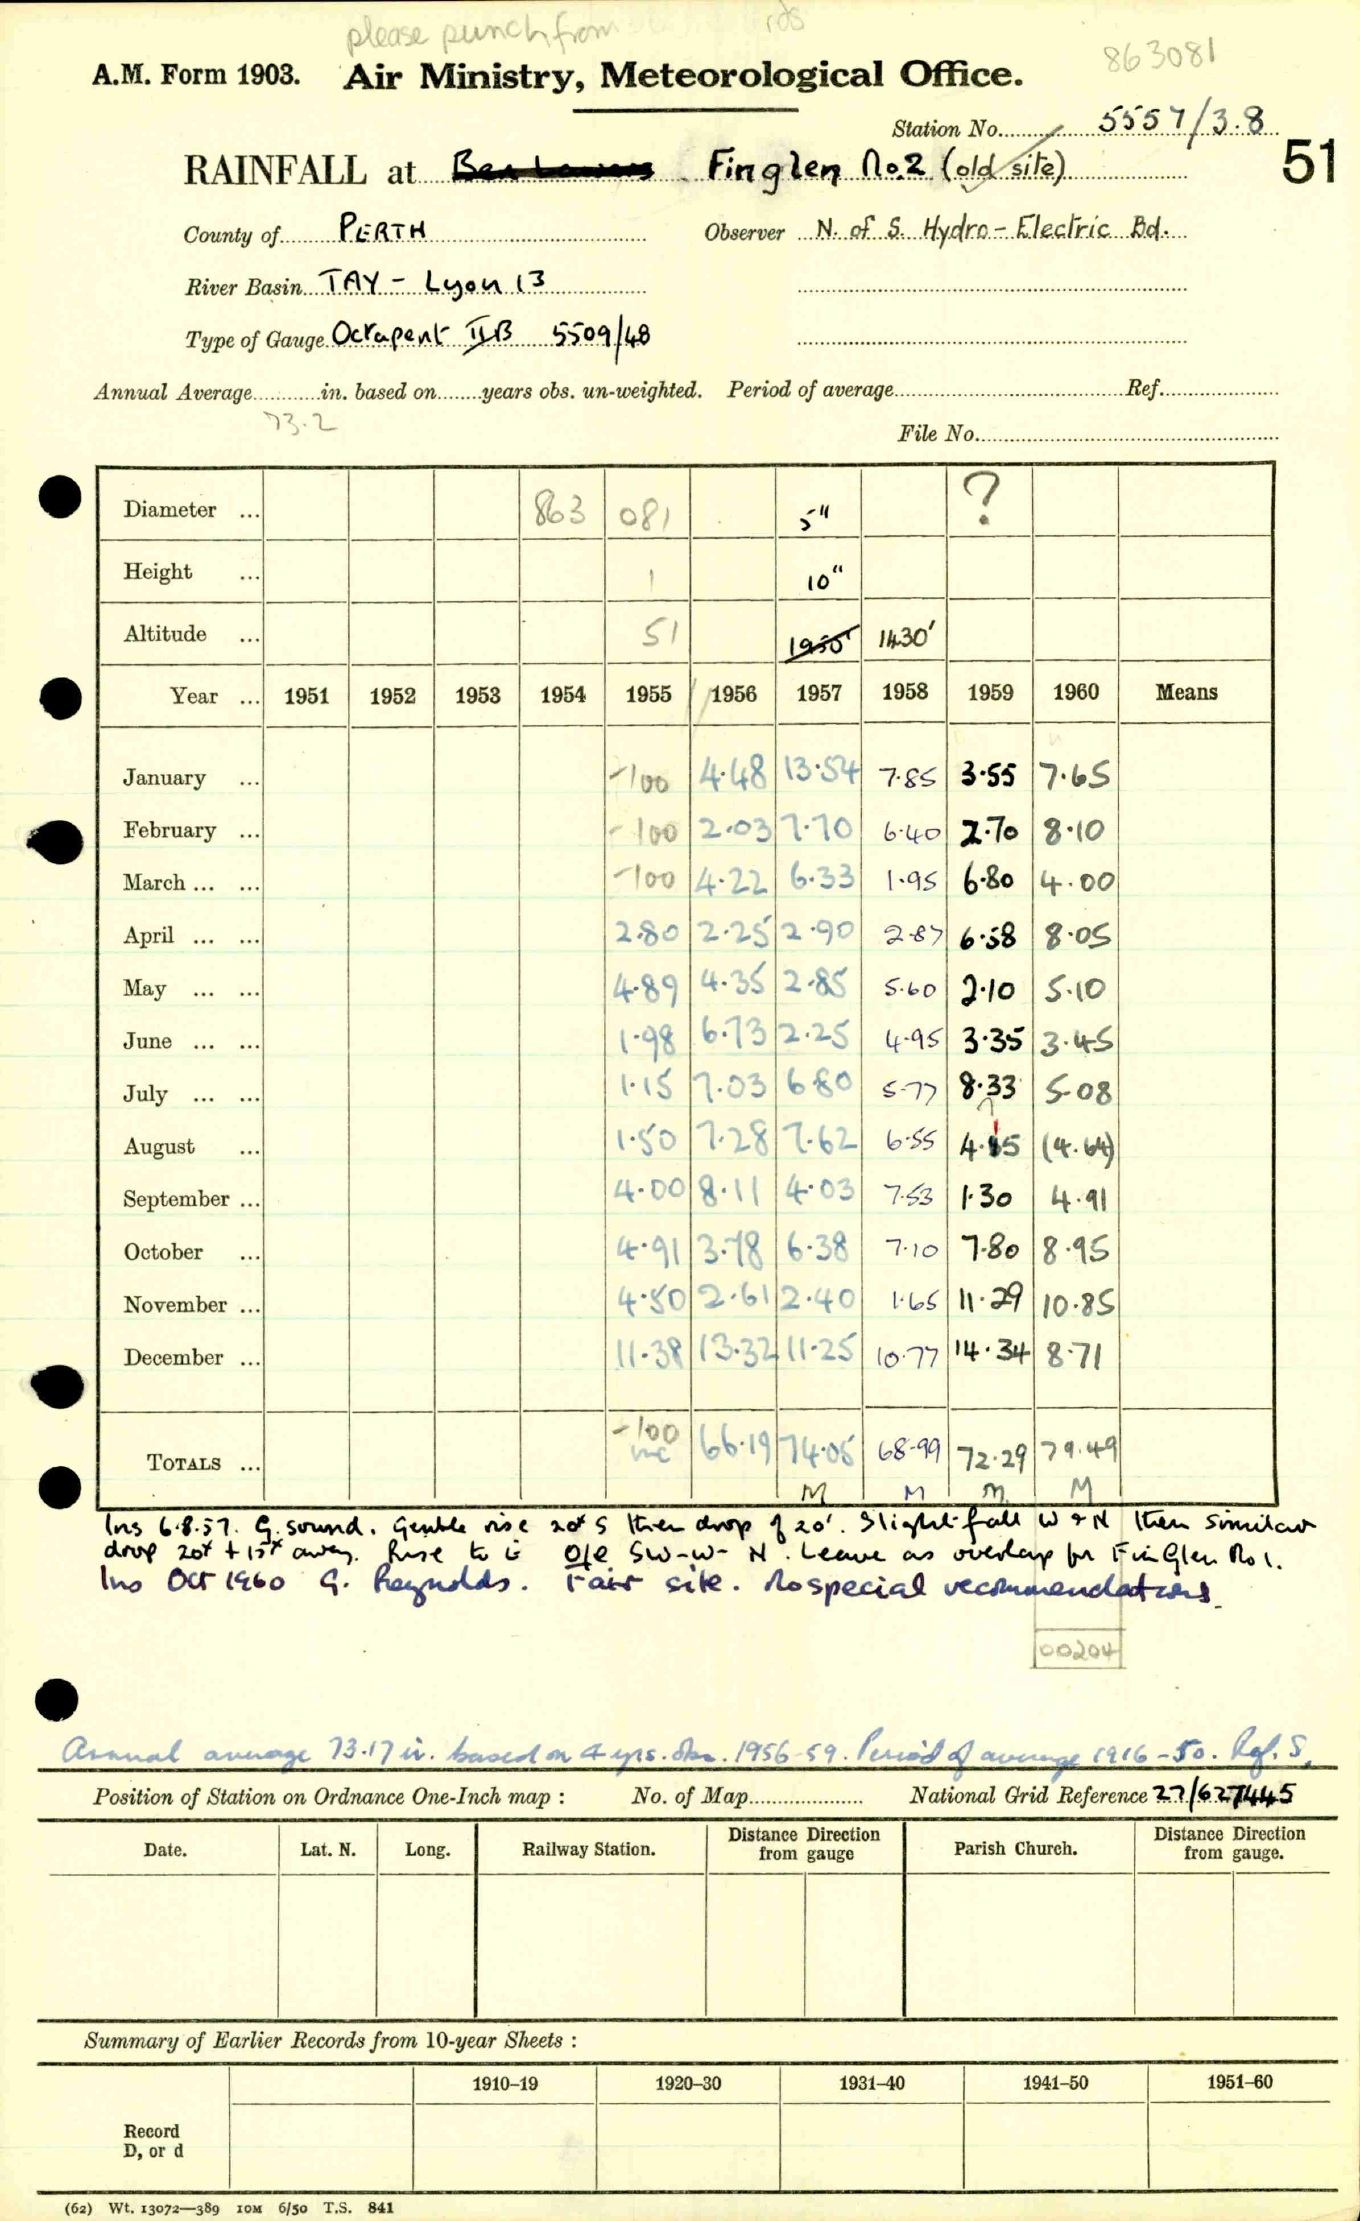 please punch from
863081
A.M. Form 1903. Air Ministry, Meteorological Office.
Station No. 5557/3.8
51
RAINFALL at Ben Lawers Finglen No.2 (old site)
County of PERTH Observer N. of S. Hydro-Electric Bd.
River Basin TAY - Lyon 13
Type of Gauge Octapent IIB 5509/48
Annual Average in. based on years obs. un-weighted. Period of average Ref.
73.2
File No.
Diameter ... 863 081 5" ?
Height ... 1 10"
Altitude ... 51 1950' 1430'
Year ... 1951 1952 1953 1954 1955 1956 1957 1958 1959 1960 Means
January ... -100 4.48 13.54 7.85 3.55 7.65
February ... -100 2.03 7.70 6.40 2.70 8.10
March ... ... -100 4.22 6.33 1.95 6.80 4.00
April ... ... 2.80 2.25 2.90 2.87 6.58 8.05
May ... ... 4.89 4.35 2.85 5.60 2.10 5.10
June ... ... 1.98 6.73 2.25 4.95 3.35 3.45
July ... ... 1.15 7.03 6.80 5.77 8.33 5.08
August ... 1.50 7.28 7.62 6.55 4.15 (4.64)
September ... 4.00 8.11 4.03 7.53 1.30 4.91
October ... 4.91 3.78 6.38 7.10 7.80 8.95
November ... 4.50 2.61 2.40 1.65 11.29 10.85
December ... 11.38 13.32 11.25 10.77 14.34 8.71
TOTALS ... -100 inc 66.19 74.05 68.99 72.29 79.49
M M M M
Ins 6.8.57. G. sound. Gentle rise 20x S then drop of 20'. Slight fall W & N then similar
drop 20x + 15x away. Rise to O/C SW-W-N. Leave as overlap for FinGlen No 1.
Ins Oct 1960 G. Reynolds. Fair site. No special recommendations.
00204
Annual average 73.17 in. based on 4 yrs. obs. 1956-59. Period of average 1916-50. Ref. S.
Position of Station on Ordnance One-Inch map : No. of Map National Grid Reference 27/627445
Date. Lat. N. Long. Railway Station. Distance from Direction gauge Parish Church. Distance from Direction gauge.
Summary of Earlier Records from 10-year Sheets :
1910-19 1920-30 1931-40 1941-50 1951-60
Record
D, or d
(62) Wt. 13072—389 10M 6/50 T.S. 841